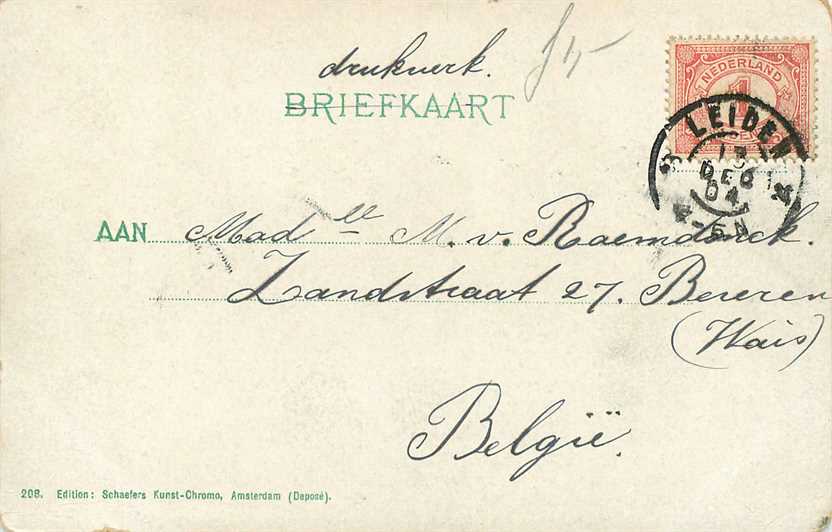 drukwerk. f 1,-
BRIEFKAART
NEDERLAND
1
LEIDEN
DEC
04
4-5N
AAN Madlle M. v. Raemdonck.
Zandstraat 27. Beveren
(Wais)
België.
208. Edition: Schaefers Kunst-Chromo, Amsterdam (Deposé).